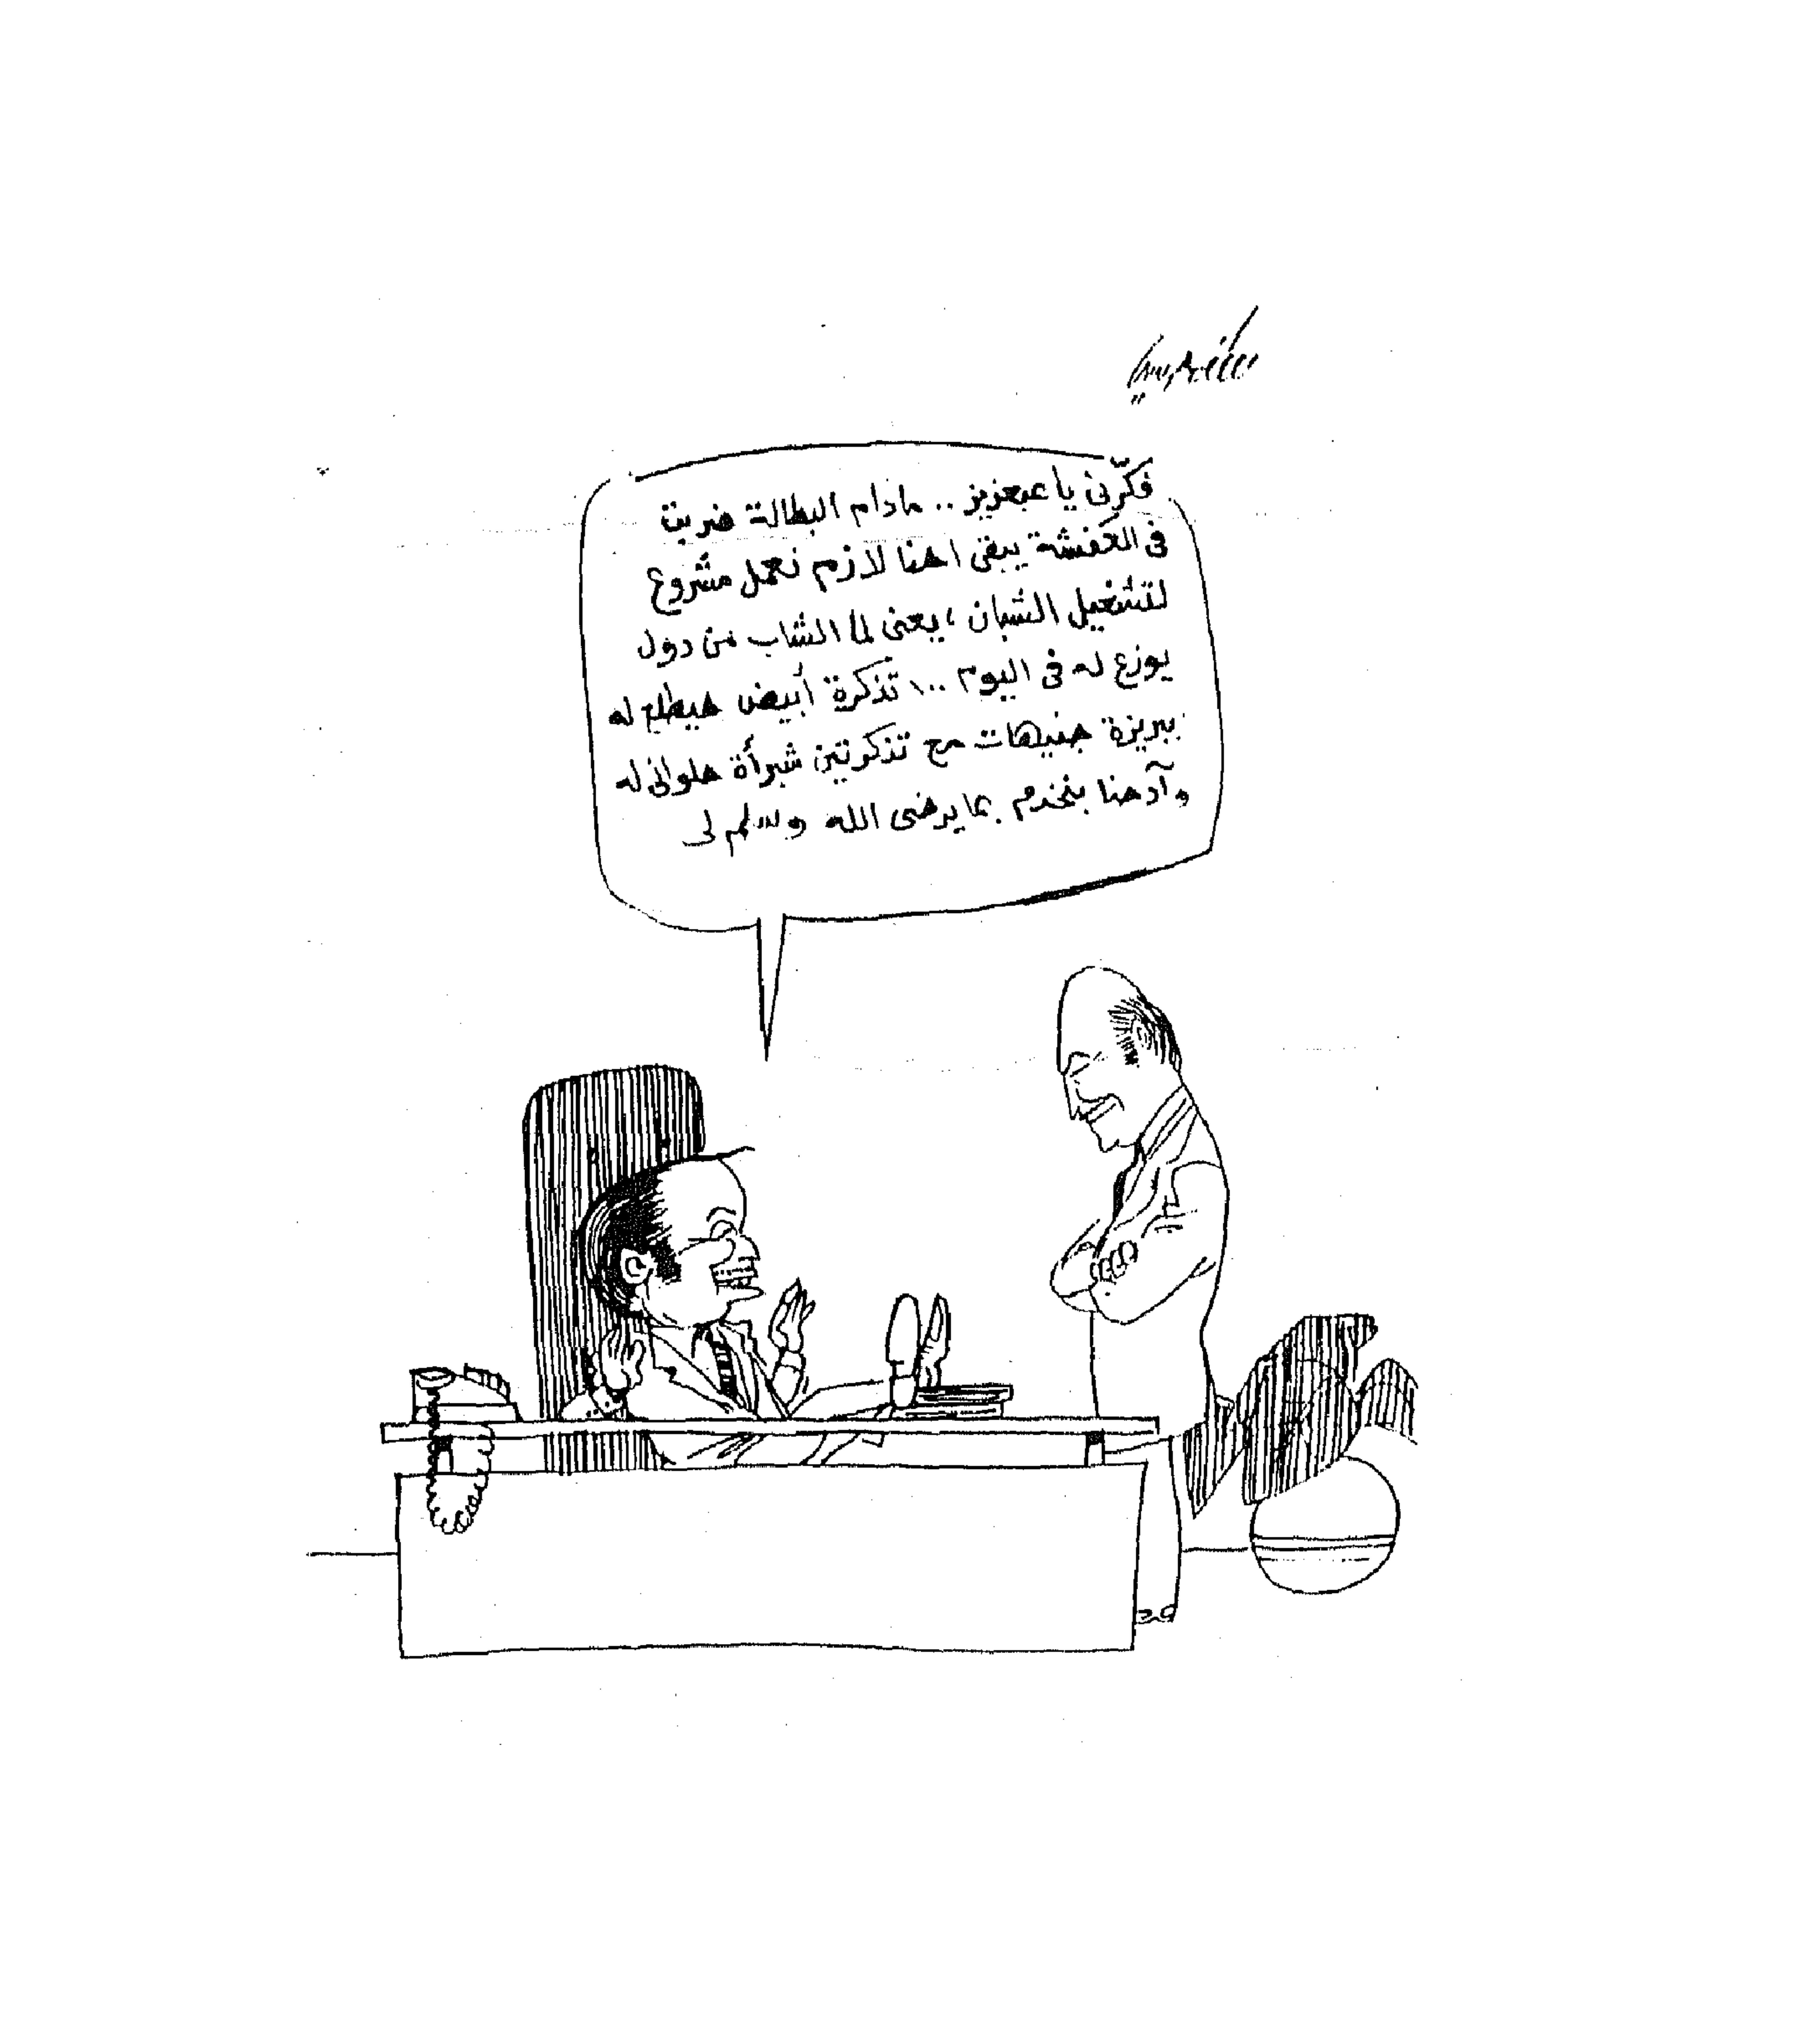 فكّرنى يا عبعزيز .. مادام البطالة ضربت
فى العكفشة يبقى احنا لازم نعمل مشروع
لتشغيل الشبان ، يعنى لما الشاب من دول
يوزع له فى اليوم ١٠٠ تذكرة أبيض هيطلع له
ببريزة جنيهات مع تذكرتين شبرأة حلوانى له
وآدحنا بنخدم بما يرضى الله وسلم لى